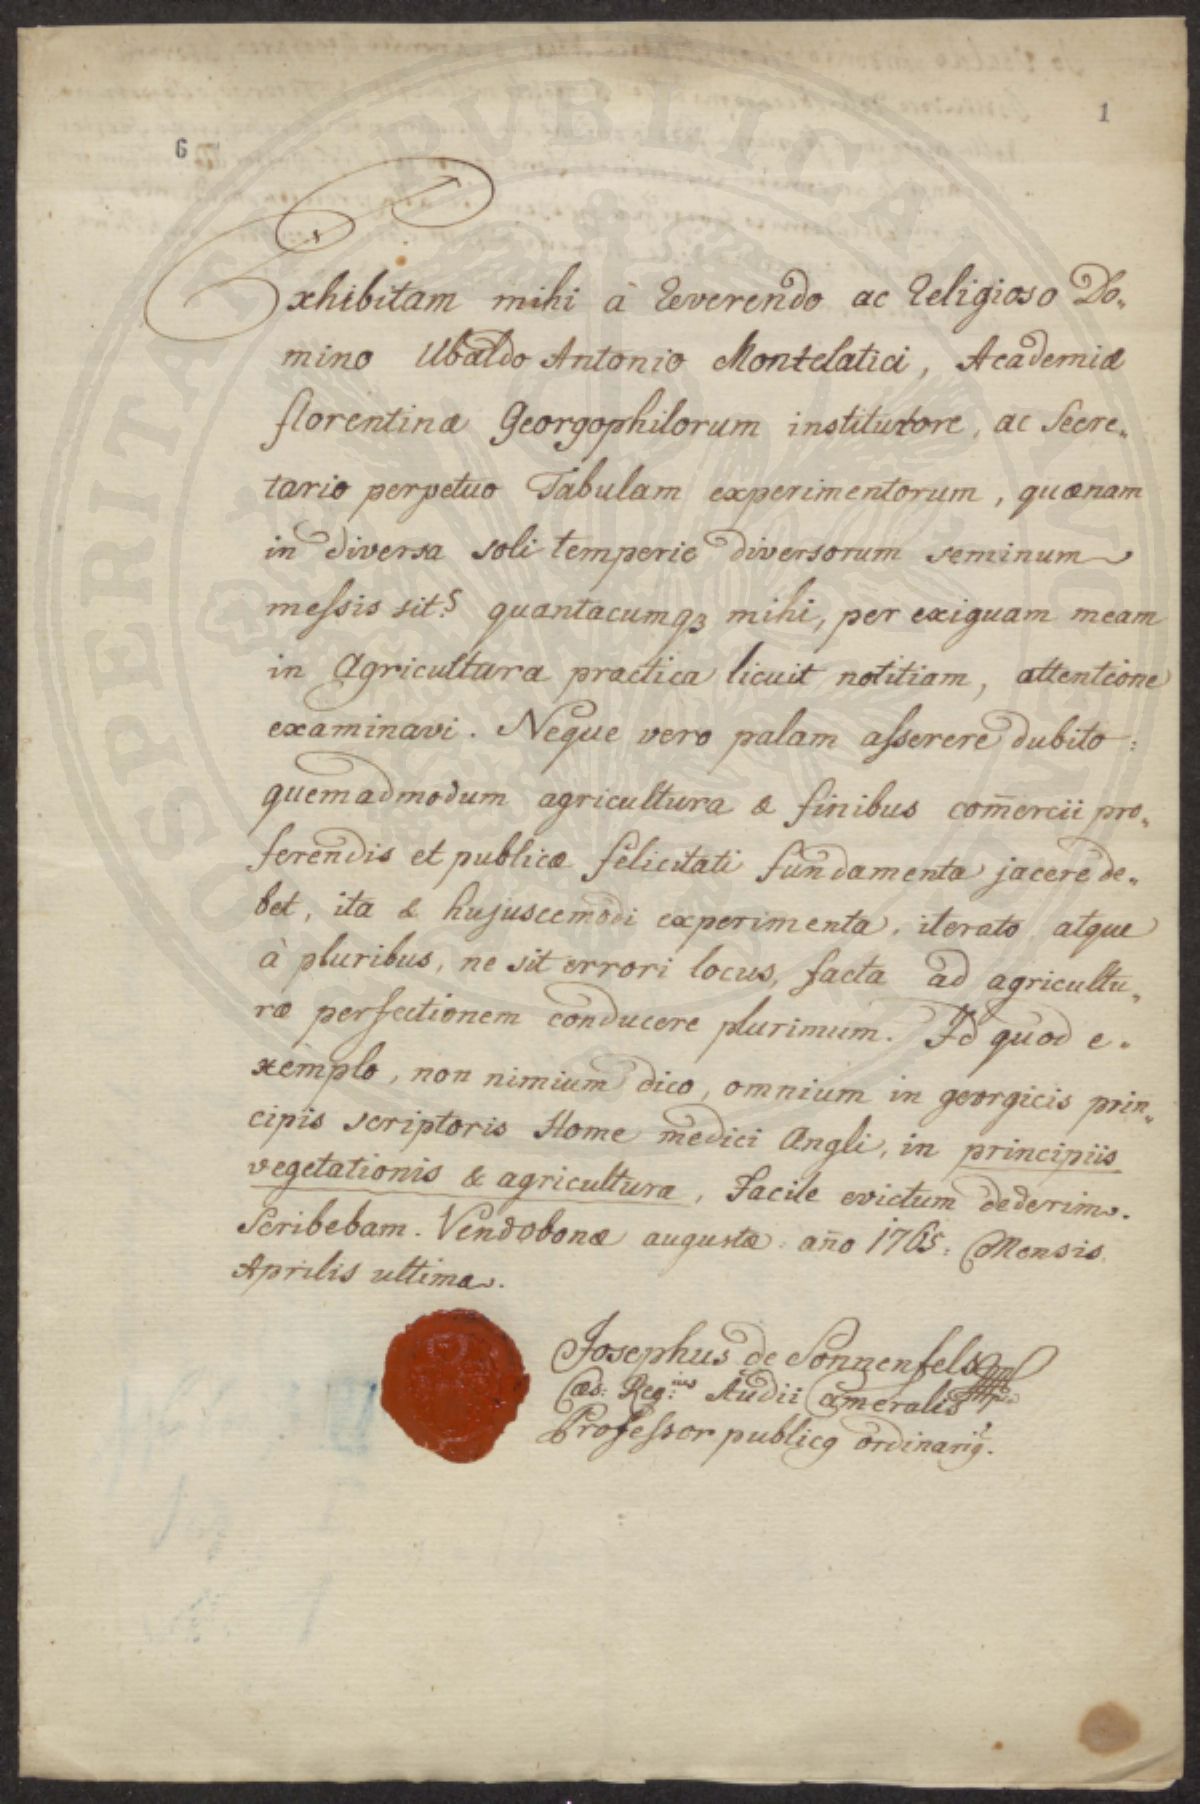 1
6
Exhibitam mihi à Reverendo ac Religioso Do„
mino Ubaldo Antonio Montelatici, Academiæ
florentinæ Georgophilorum institutore, ac Secre„
tario perpetuo Tabulam experimentorum, quænam
in diversa soli temperie diversorum seminum
messis sit: quantacumqꝫ mihi, per exiguam meam
in Agricultura practica licuit notitiam, attentione
examinavi. Neque vero palam asserere dubito:
quemadmodum agricultura & finibus com̄ercii pro„
ferendis et publicæ felicitati fundamenta jacere de„
bet, ita & hujuscemodi experimenta, iterato atque
à pluribus, ne sit errori locus, facta ad agricultu„
ræ perfectionem conducere plurimum. Id quod e„
xemplo, non nimium dico, omnium in georgicis prin„
cipis scriptoris Home medici Angli, in principiis
vegetationis & agriculturæ, facile evictum dederim.
Scribebam. Vendobonæ augustæ: año 1765: Mensis
Aprilis ultima.
Josephus de Sonnenfels
Cæs: Reg:ius Studii Cameralis
Professor publicq ordinariq.
PROSPERITATI PUBLICAE AUGENDAE